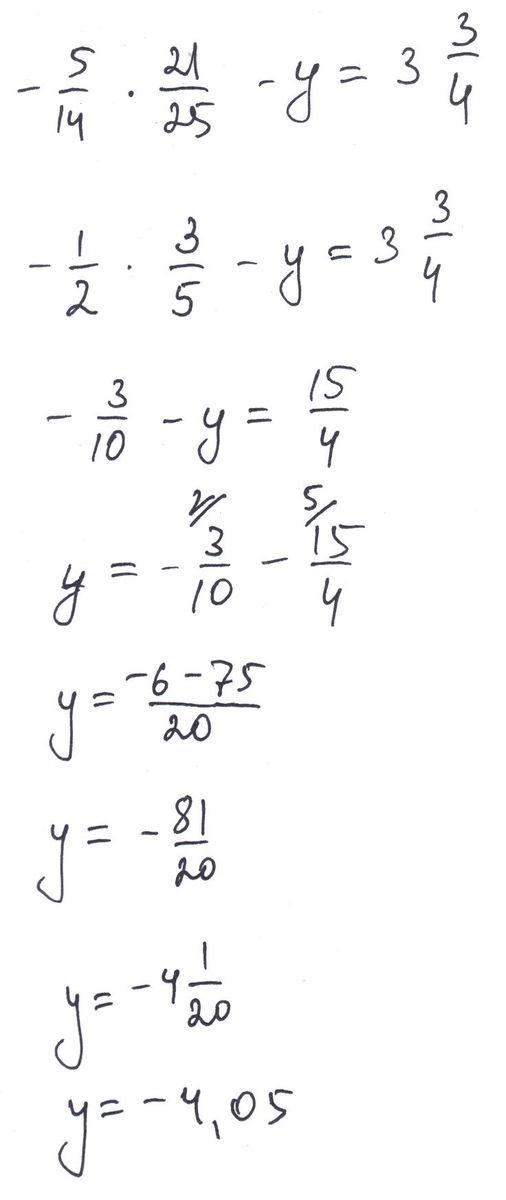 -5/14 · 21/25 - y = 3 3/4
-1/2 · 3/5 - y = 3 3/4
-3/10 - y = 15/4
y = - 2/ 3/10 - 5/ 15/4
y = (-6-75)/20
y = -81/20
y = -4 1/20
y = -4,05